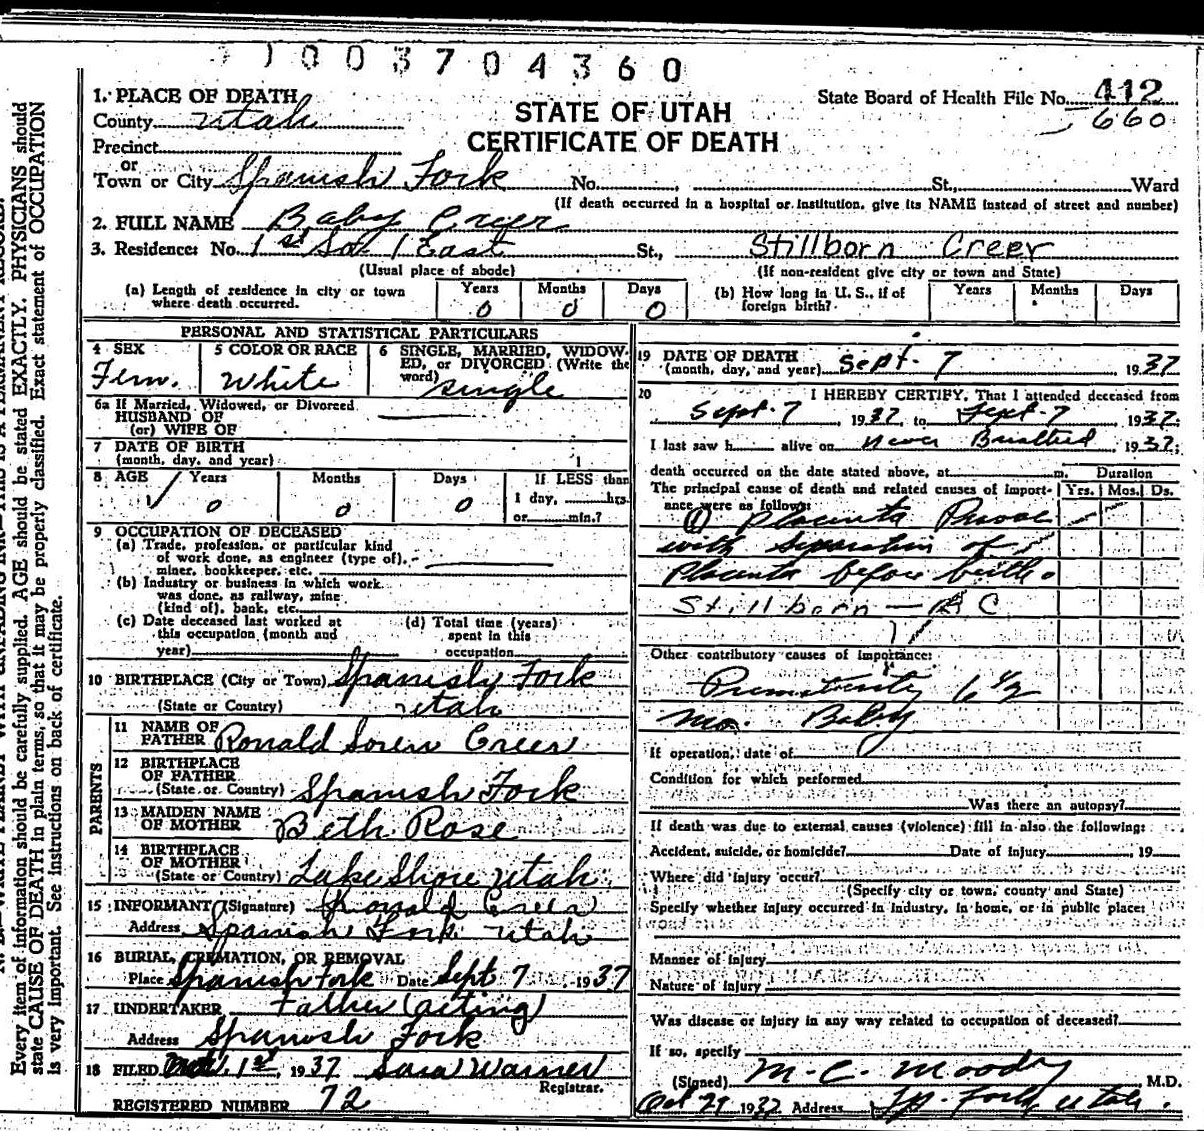 1003704360
STATE OF UTAH
CERTIFICATE OF DEATH
State Board of Health File No. 412
660
1. PLACE OF DEATH
County Utah
Precinct
or
Town or City Spanish Fork No. St., Ward
(If death occurred in a hospital or institution, give its NAME instead of street and number)
2. FULL NAME Baby Creer
3. Residence: No. 1st So. 1 East St., Stillborn Creer
(Usual place of abode) (If non-resident give city or town and State)
(a) Length of residence in city or town where death occurred. Years 0 Months 0 Days 0
(b) How long in U. S., if of foreign birth? Years Months Days
PERSONAL AND STATISTICAL PARTICULARS
4 SEX Fem.
5 COLOR OR RACE White
6 SINGLE, MARRIED, WIDOWED, or DIVORCED (Write the word) single
6a If Married, Widowed, or Divorced
HUSBAND OF
(or) WIFE OF
7 DATE OF BIRTH
(month, day, and year)
8 AGE Years 0 Months 0 Days 0 If LESS than
1 day, hrs.
or min.?
9 OCCUPATION OF DECEASED
(a) Trade, profession, or particular kind
of work done, as engineer (type of),
miner, bookkeeper, etc.
(b) Industry or business in which work
was done, as railway, mine
(kind of), bank, etc.
(c) Date deceased last worked at
this occupation (month and
year)
(d) Total time (years)
spent in this
occupation
10 BIRTHPLACE (City or Town) Spanish Fork
(State or Country) Utah
PARENTS
11 NAME OF FATHER Ronald Soren Creer
12 BIRTHPLACE OF FATHER
(State or Country) Spanish Fork
13 MAIDEN NAME OF MOTHER Beth Rose
14 BIRTHPLACE OF MOTHER
(State or Country) Lake Shore Utah
15 INFORMANT (Signature) Ronald Creer
Address Spanish Fork Utah
16 BURIAL, CREMATION, OR REMOVAL
Place Spanish Fork Date Sept 7 1937
17 UNDERTAKER Father (acting)
Address Spanish Fork
18 FILED Nov. 1st, 1937 Sara Warner
Registrar.
REGISTERED NUMBER 72
19 DATE OF DEATH
(month, day, and year) Sept. 7 1937
20 I HEREBY CERTIFY, That I attended deceased from
Sept. 7 1937, to Sept. 7 1937;
I last saw h alive on Never Breathed 1937;
death occurred on the date stated above, at m. Duration
The principal cause of death and related causes of importance were as follows: Yrs. Mos. Ds.
(1) Placenta
with separation of
Placenta before birth.
Stillborn —
Other contributory causes of importance:
Prematurity 6 1/2
mo. Baby
If operation, date of
Condition for which performed
Was there an autopsy?
If death was due to external causes (violence) fill in also the following:
Accident, suicide, or homicide? Date of injury 19
Where did injury occur?
(Specify city or town, county and State)
Specify whether injury occurred in industry, in home, or in public place:
Manner of injury
Nature of injury
Was disease or injury in any way related to occupation of deceased?
If so, specify
(Signed) M. C. Moody M.D.
Oct 29 1937 Address Sp. Fork, Utah.
Every item of information should be carefully supplied. AGE should be stated EXACTLY. PHYSICIANS should
state CAUSE OF DEATH in plain terms, so that it may be properly classified. Exact statement of OCCUPATION
is very important. See instructions on back of certificate.